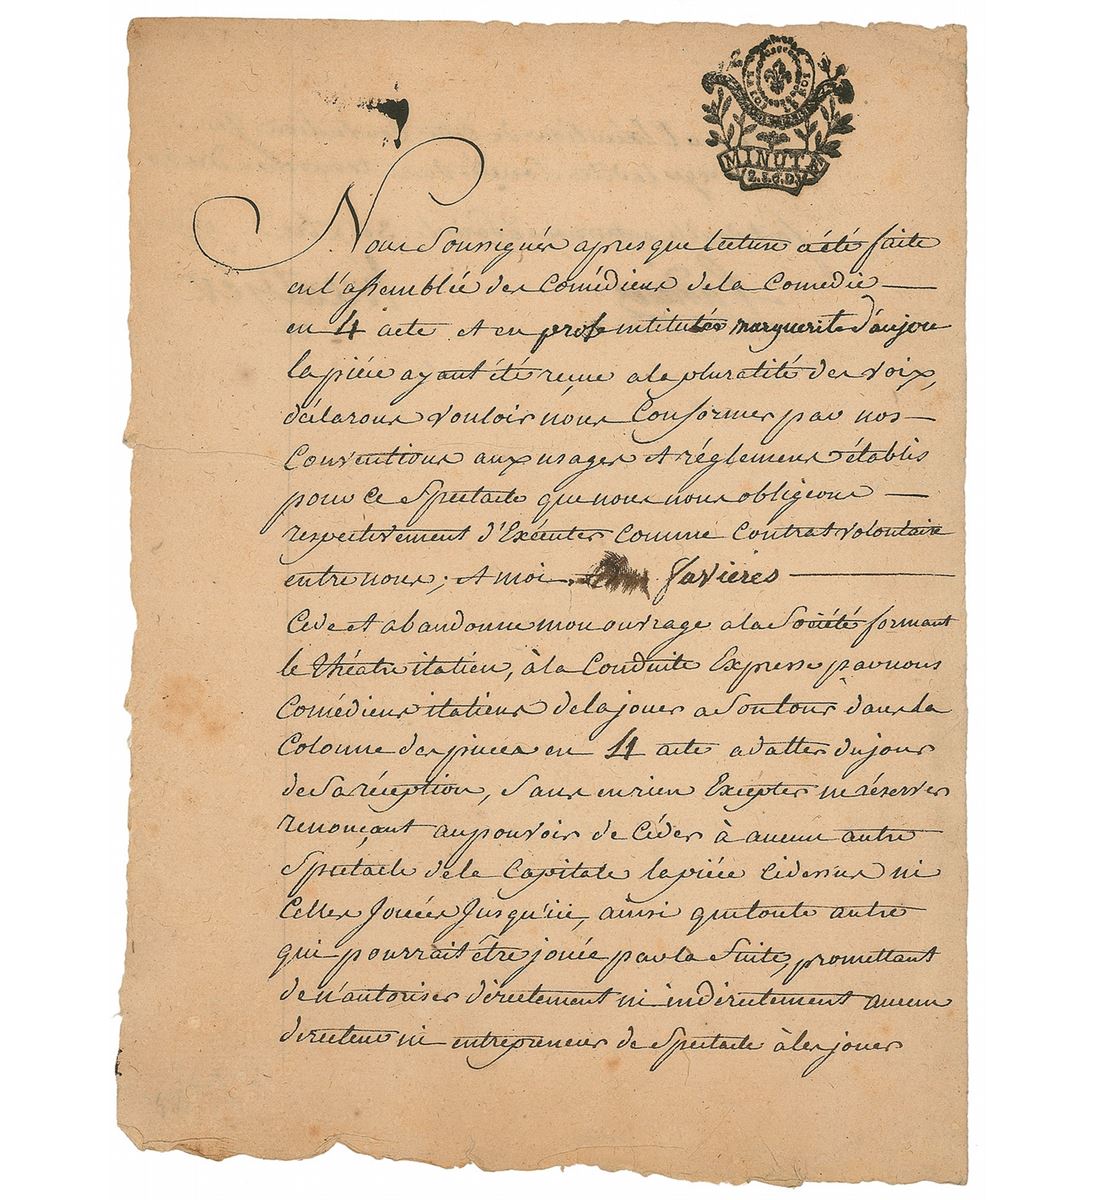 LA LOI
LE ROI
MINUTE
2. S. 6. D.
Nous Soussignés apres que lecture a été faite
en l'assemblée des Comédiens de la Comedie —
en 4 acte et en prose intitulée marguerite d'anjou
la piéce ayant été reçue a la pluralité des voix,
déclarons vouloir nous Conformer par nos —
Conventions aux usages et réglemens établis
pour ce Spectacle que nous nous obligeons —
respectivement d'Exécuter comme Contrat volontaire
entre nous; et moi, favieres —
Cede et abandonne mon ouvrage a la Société formant
le théatre italien, à la Conduite Expresse par nous
Comédiens italiens de la jouer a Son tour dans la
Colonne des pieces en 4 acte a datter du jour
de Sa réception, Sans en rien Excepter ni réserver
renonçant au pouvoir de Céder à aucun autre
Spectacle de la Capitale la piéce cidessus ni
Celles Jouées Jusqu'ici, ainsi que toute autre
qui pourrait être jouée par la Suite, promettant
de n'autoriser directement ni indirectement aucun
directeur ni entrepreneur de Spectacle à les jouer